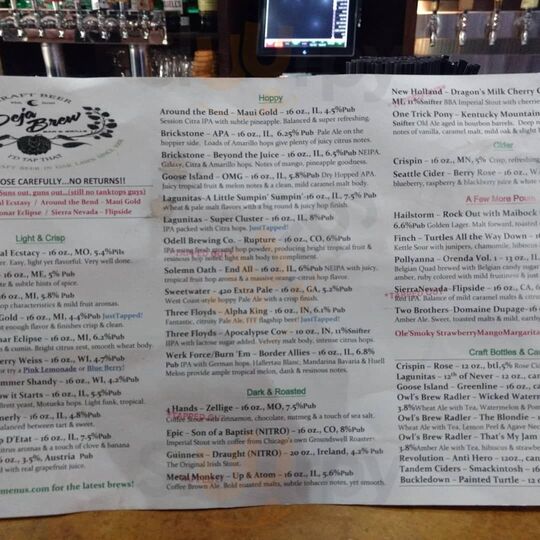 CRAFT BEER
Deja Brew
BAR & GRILLE
I'D TAP THAT
OSE CAREFULLY...NO RETURNS!!
Suns out, guns out...(still no tanktops guys)
al Ecstasy / Around the Bend - Maui Gold
onar Eclipse / Sierra Nevada - Flipside
Light & Crisp
al Ecstasy - 16 oz., MO, 5.4%Pils
er. Easy, light yet flavorful. Very well done.
- 16 oz., ME, 5% Pub
te & subtle hints of spice.
- 16 oz., MI, 5.8% Pub
op characteristics & mild fruit aromas.
Gold - 16 oz., MI, 4.4%Pub JustTapped!
t enough flavor & finishes crisp & clean.
nar Eclipse - 16 oz., MI, 6.2%Pub
e & cumin. Bright citrus zest, smooth wheat body.
erry Weiss - 16 oz., WI, 4.7%Pub
er try a Pink Lemonade or Blue Berry!
ummer Shandy - 16 oz., WI, 4.2%Pub
ow it Starts - 16 oz., IL, 5.5%Pub
Brett yeast, Motueka hops. Light funk, tropical.
nerly - 16 oz., IL, 4.8%Pub
balanced between tart & sweet.
p D'Etat - 16 oz., IL, 7.5%Pub
citrus aromas & a touch of clove & banana
6 oz., 3.5%, Austria Pub
d with real grapefruit juice.
menus.com for the latest brews!
Hoppy
Around the Bend - Maui Gold - 16 oz., IL, 4.5%Pub
Session Citra IPA with subtle pineapple. Balanced & super refreshing.
Brickstone - APA - 16 oz., IL, 6.25% Pub Pale Ale on the
hoppier side. Loads of Amarillo hops give plenty of juicy citrus notes.
Brickstone - Beyond the Juice - 16 oz., IL, 6.5%Pub NEIPA.
Galaxy, Citra & Amarillo hops. Notes of mango, pineapple goodness.
Goose Island - OMG - 16 oz., IL, 5.8%Pub Dry Hopped APA.
Juicy tropical fruit & melon notes & a clean, mild caramel malt body.
Lagunitas-A Little Sumpin' Sumpin'-16 oz., IL, 7.5% Pub
Wheat & pale malt flavors with a big round & juicy hop finish.
Lagunitas - Super Cluster - 16 oz., IL, 8%Pub
IPA packed with Citra hops. JustTapped!
Odell Brewing Co. - Rupture - 16 oz., CO, 6%Pub
IPA using fresh ground hop powder, producing bright tropical fruit &
resinous hop notes, light malt body to compliment.
Solemn Oath - End All - 16 oz., IL, 6%Pub NEIPA with juicy,
tropical fruit aromas & a massive orange-citrus hop flavor.
Sweetwater - 420 Extra Pale - 16 oz., GA, 5.2%Pub
West Coast-style hoppy Pale Ale with a crisp finish.
Three Floyds - Alpha King - 16 oz., IN, 6.1% Pub
Fantastic, citrusy Pale Ale, ITF flagship beer! JustTapped!
Three Floyds - Apocalypse Cow - 10 oz., IN, 11%Snifter
IIPA with lactose sugar added. Velvety malt body, intense citrus hops.
Werk Force/Burn 'Em - Border Allies - 16 oz., IL, 6.8%
Pub IPA with German hops. Hallertau Blanc, Mandarina Bavaria & Huell
Melon provide ample tropical melon, dank & resinous notes.
Dark & Roasted
4 Hands - Zellige - 16 oz., MO, 7.5%Pub
Coffee Stout with cinnamon, chocolate, nutmeg & a touch of sea salt.
Epic - Son of a Baptist (NITRO) - 16 oz., CO, 8%Pub
Imperial Stout with coffee from Chicago's own Groundswell Roasters
Guinness - Draught (NITRO) - 20 oz., Ireland, 4.2% Pub
The Original Irish Stout.
Metal Monkey - Up & Atom - 16 oz., IL, 5.6%Pub
Coffee Brown Ale. Bold roasted malts, subtle tobacco notes, yet smooth.
New Holland - Dragon's Milk Cherry
MI, 11%Snifter BBA Imperial Stout with cherries
One Trick Pony - Kentucky Mountain
Snifter Old Ale aged in bourbon barrels. Deep
notes of vanilla, caramel malt, mild oak & slight
Cider
Crispin - 16 oz., MN, 5% Crisp, refreshing
Seattle Cider - Berry Rose - 16 oz., WA
blueberry, raspberry & blackberry juice & white
A Few More Pours
Hailstorm - Rock Out with Maibock
6.6%Pub Golden Lager. Malt forward, toasted
Finch - Turtles All the Way Down - 16
Kettle Sour with junipers, chamomile, hibiscus
Pollyanna - Orenda Vol. 1 - 13 oz., IL
Belgian Quad brewed with Belgian candy sugar
SierraNevada-Flipside - 16 oz., CA, 6
Red IPA. Balance of mild caramel malts & citrus
Two Brothers - Domaine Dupage-16 o
Amber Ale. Sweet, toasted malts & mild, earthy
Ole'Smoky StrawberryMangoMargarita
Craft Bottles & Ca
Crispin - Rose - 12 oz., btl,5% Rose Ci
Lagunitas - 12th of Never - 12 oz., can
Goose Island - Greenline - 16 oz., can
Owl's Brew Radler - Wicked Waterm
3.8%Wheat Ale with Tea, Watermelon & Pom
Owl's Brew Radler - The Blondie - 12
Wheat Ale with Tea, Lemon Peel & Agave Nec
Owl's Brew Radler - That's My Jam
3.8%Amber Ale with Tea, hibiscus & strawb
Revolution - Anti Hero - 12oz., can
Tandem Ciders - Smackintosh - 16
Buckledown - Painted Turtle - 12 o